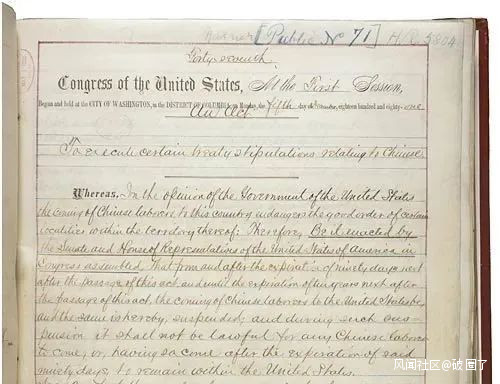 [Public Nº 71] H.R. 5804
Forty-seventh
Congress of the United States, At the First Session,
Begun and held at the CITY OF WASHINGTON, in the DISTRICT OF COLUMBIA, on Monday, the fifth day of December, eighteen hundred and eighty-one
An Act
To execute certain treaty stipulations relating to Chinese.
Whereas, In the opinion of the Government of the United States
the coming of Chinese laborers to this country endangers the good order of certain
localities within the territory thereof: Therefore, Be it enacted by
the Senate and House of Representatives of the United States of America in
Congress assembled, That from and after the expiration of ninety days next
after the passage of this act, and until the expiration of ten years next after
the passage of this act, the coming of Chinese laborers to the United States be,
and the same is hereby, suspended; and during such sus-
pension it shall not be lawful for any Chinese laborer
to come, or, having so come after the expiration of said
ninety days, to remain within the United States.
风闻社区@破圈了